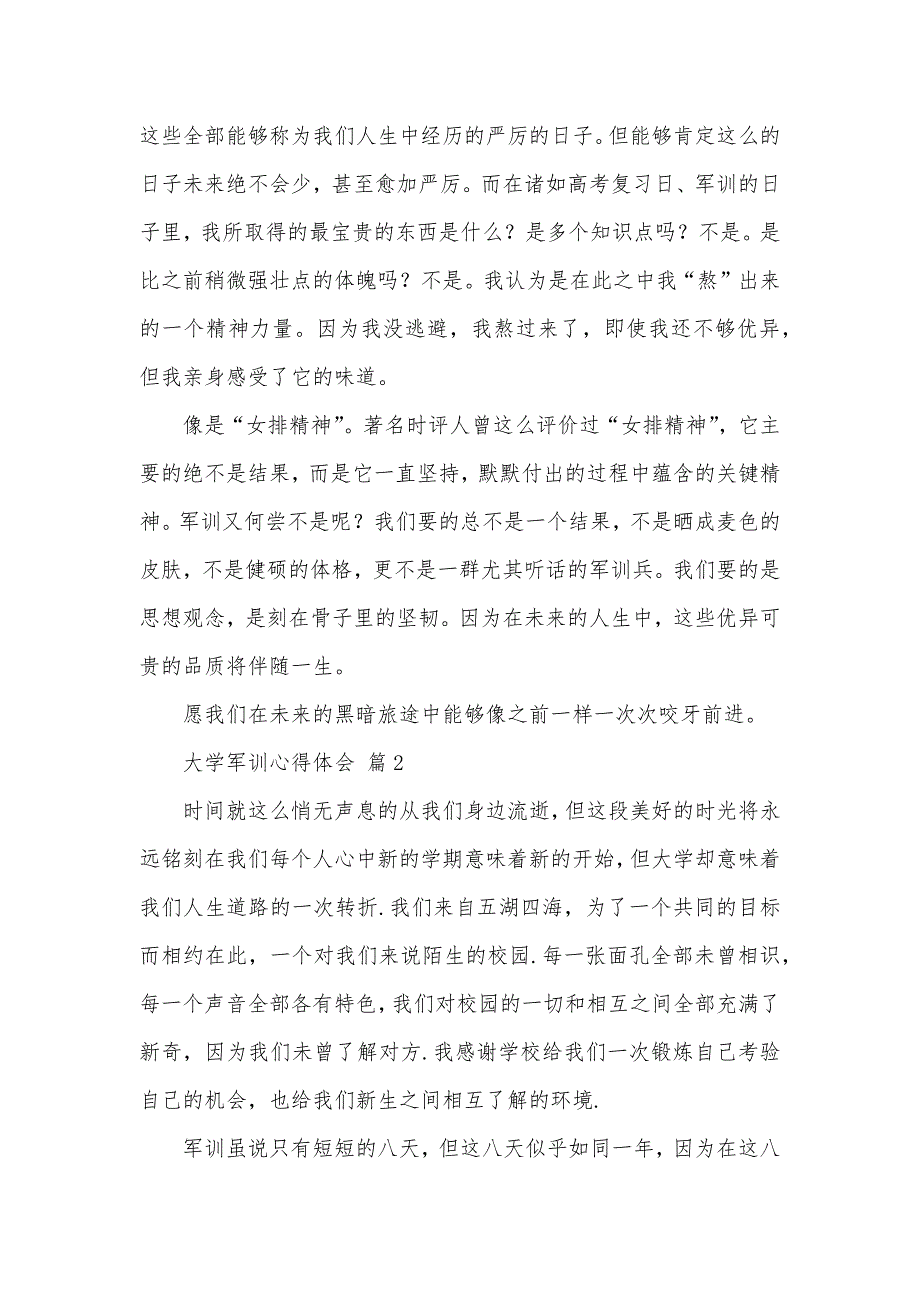 这些全部能够称为我们人生中经历的严厉的日子。但能够肯定这么的
日子未来绝不会少，甚至愈加严厉。而在诸如高考复习日、军训的日
子里，我所取得的最宝贵的东西是什么？是多个知识点吗？不是。是
比之前稍微强壮点的体魄吗？不是。我认为是在此之中我“熬”出来
的一个精神力量。因为我没逃避，我熬过来了，即使我还不够优异，
但我亲身感受了它的味道。
像是“女排精神”。著名时评人曾这么评价过“女排精神”，它主
要的绝不是结果，而是它一直坚持，默默付出的过程中蕴含的关键精
神。军训又何尝不是呢？我们要的总不是一个结果，不是晒成麦色的
皮肤，不是健硕的体格，更不是一群尤其听话的军训兵。我们要的是
思想观念，是刻在骨子里的坚韧。因为在未来的人生中，这些优异可
贵的品质将伴随一生。
愿我们在未来的黑暗旅途中能够像之前一样一次次咬牙前进。
大学军训心得体会 篇2
时间就这么悄无声息的从我们身边流逝，但这段美好的时光将永
远铭刻在我们每个人心中新的学期意味着新的开始，但大学却意味着
我们人生道路的一次转折.我们来自五湖四海，为了一个共同的目标
而相约在此，一个对我们来说陌生的校园.每一张面孔全部未曾相识，
每一个声音全部各有特色，我们对校园的一切和相互之间全部充满了
新奇，因为我们未曾了解对方.我感谢学校给我们一次锻炼自己考验
自己的机会，也给我们新生之间相互了解的环境.
军训虽说只有短短的八天，但这八天似乎如同一年，因为在这八